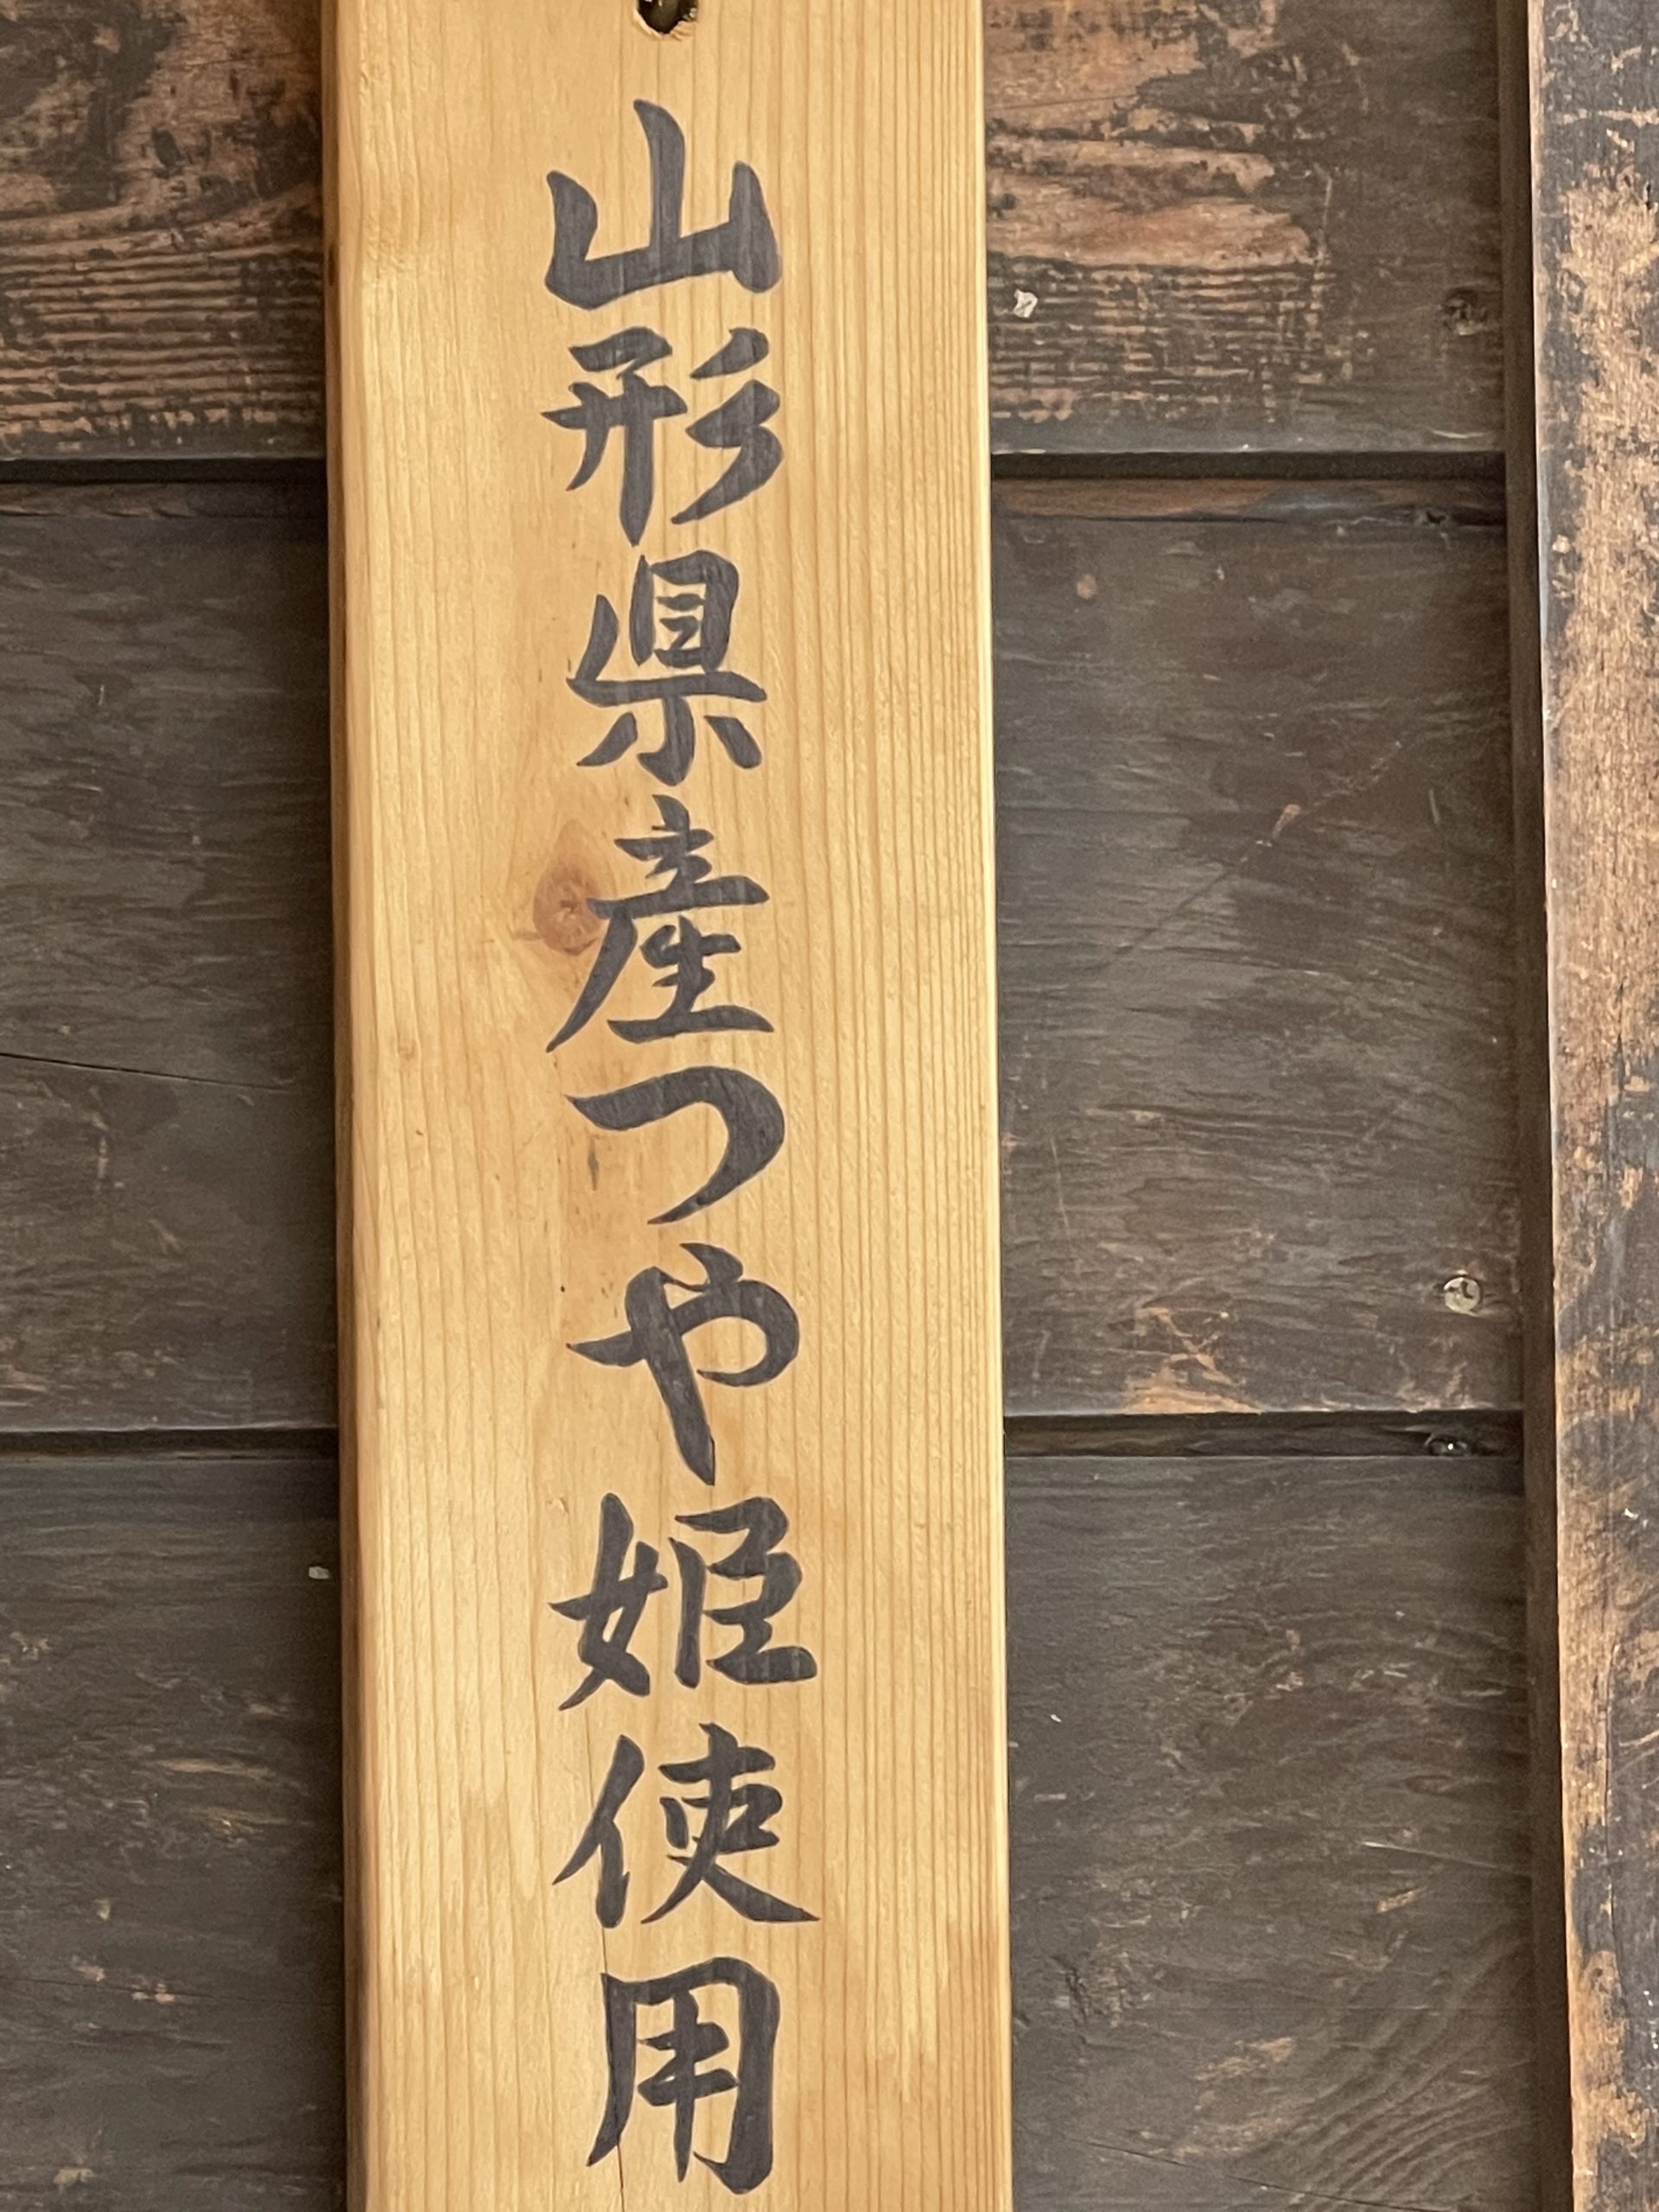 山形県産つや姫使用